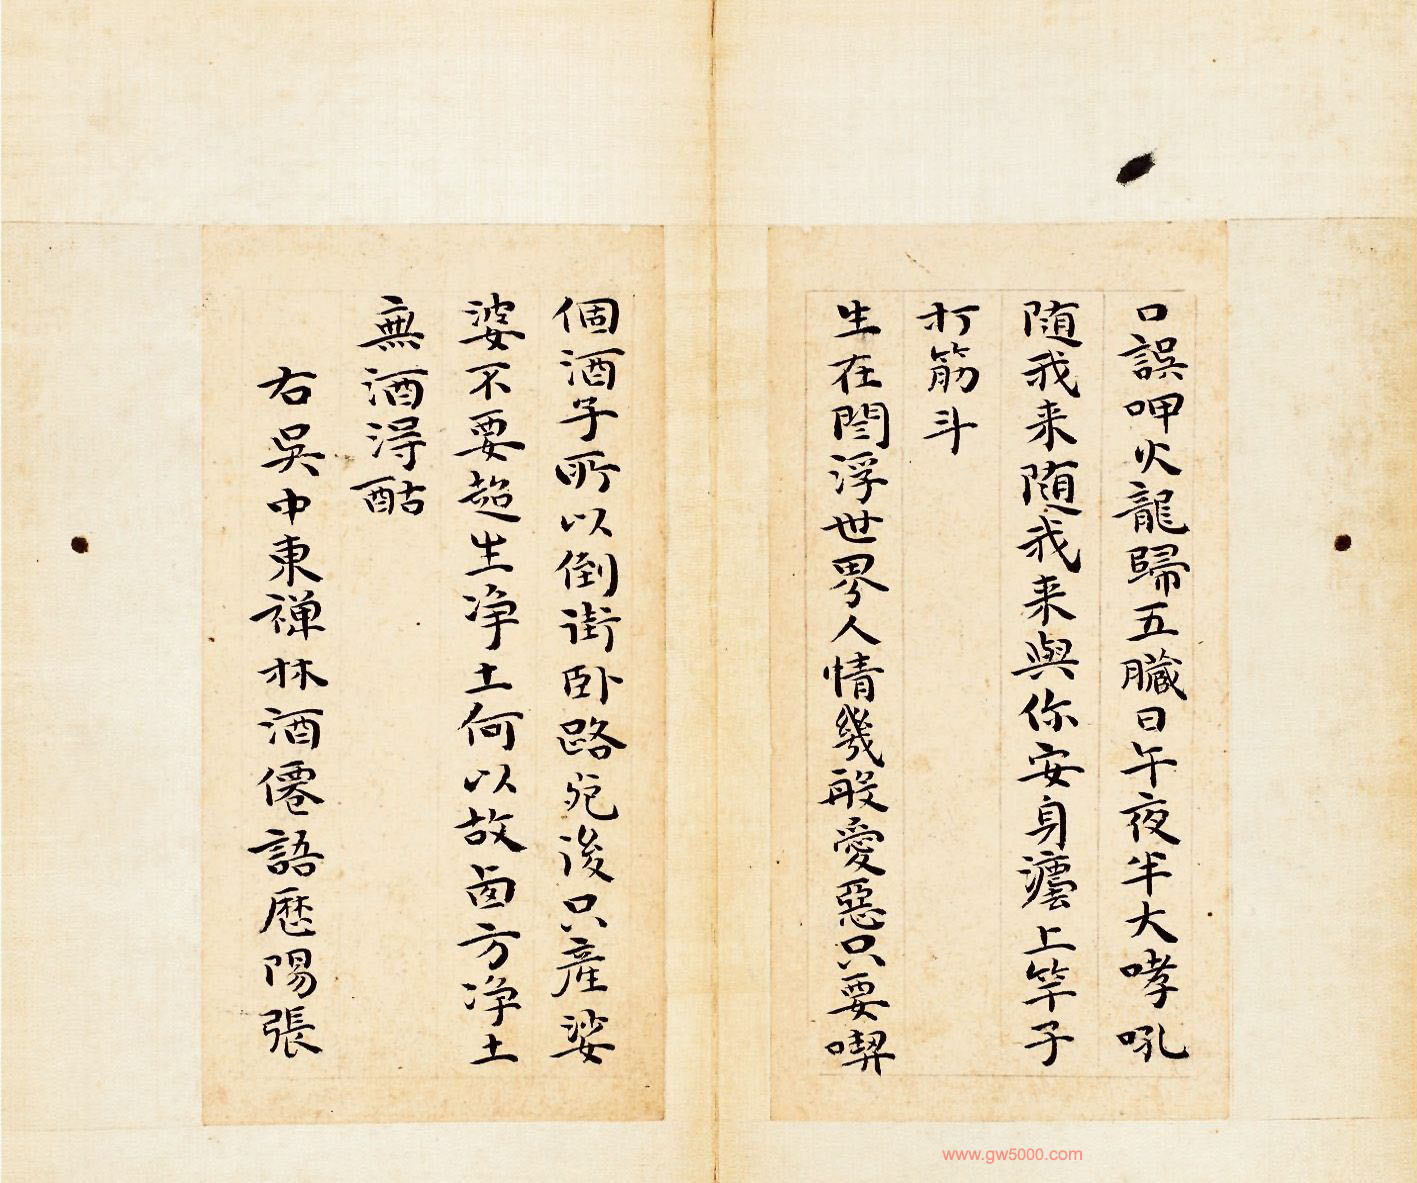 口誤呷火龍歸五臟日午夜半大哮吼
随我来随我来與你安身灋上竿子
打筋斗
生在閻浮世界人情幾般愛惡只要喫
個酒子所以倒街卧路死後只産娑
婆不要超生净土何以故西方净土
無酒得酤
右吳中東禅林酒僊語歷陽張
www.gw5000.com